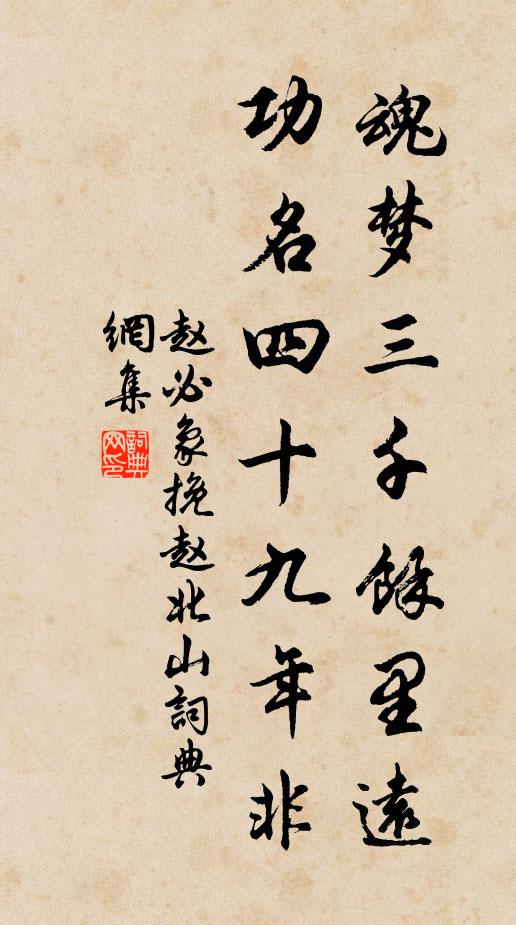 魂梦三千餘里遠
功名四十九年非
赵必象挽赵北山詞典
網集
詞典
网印